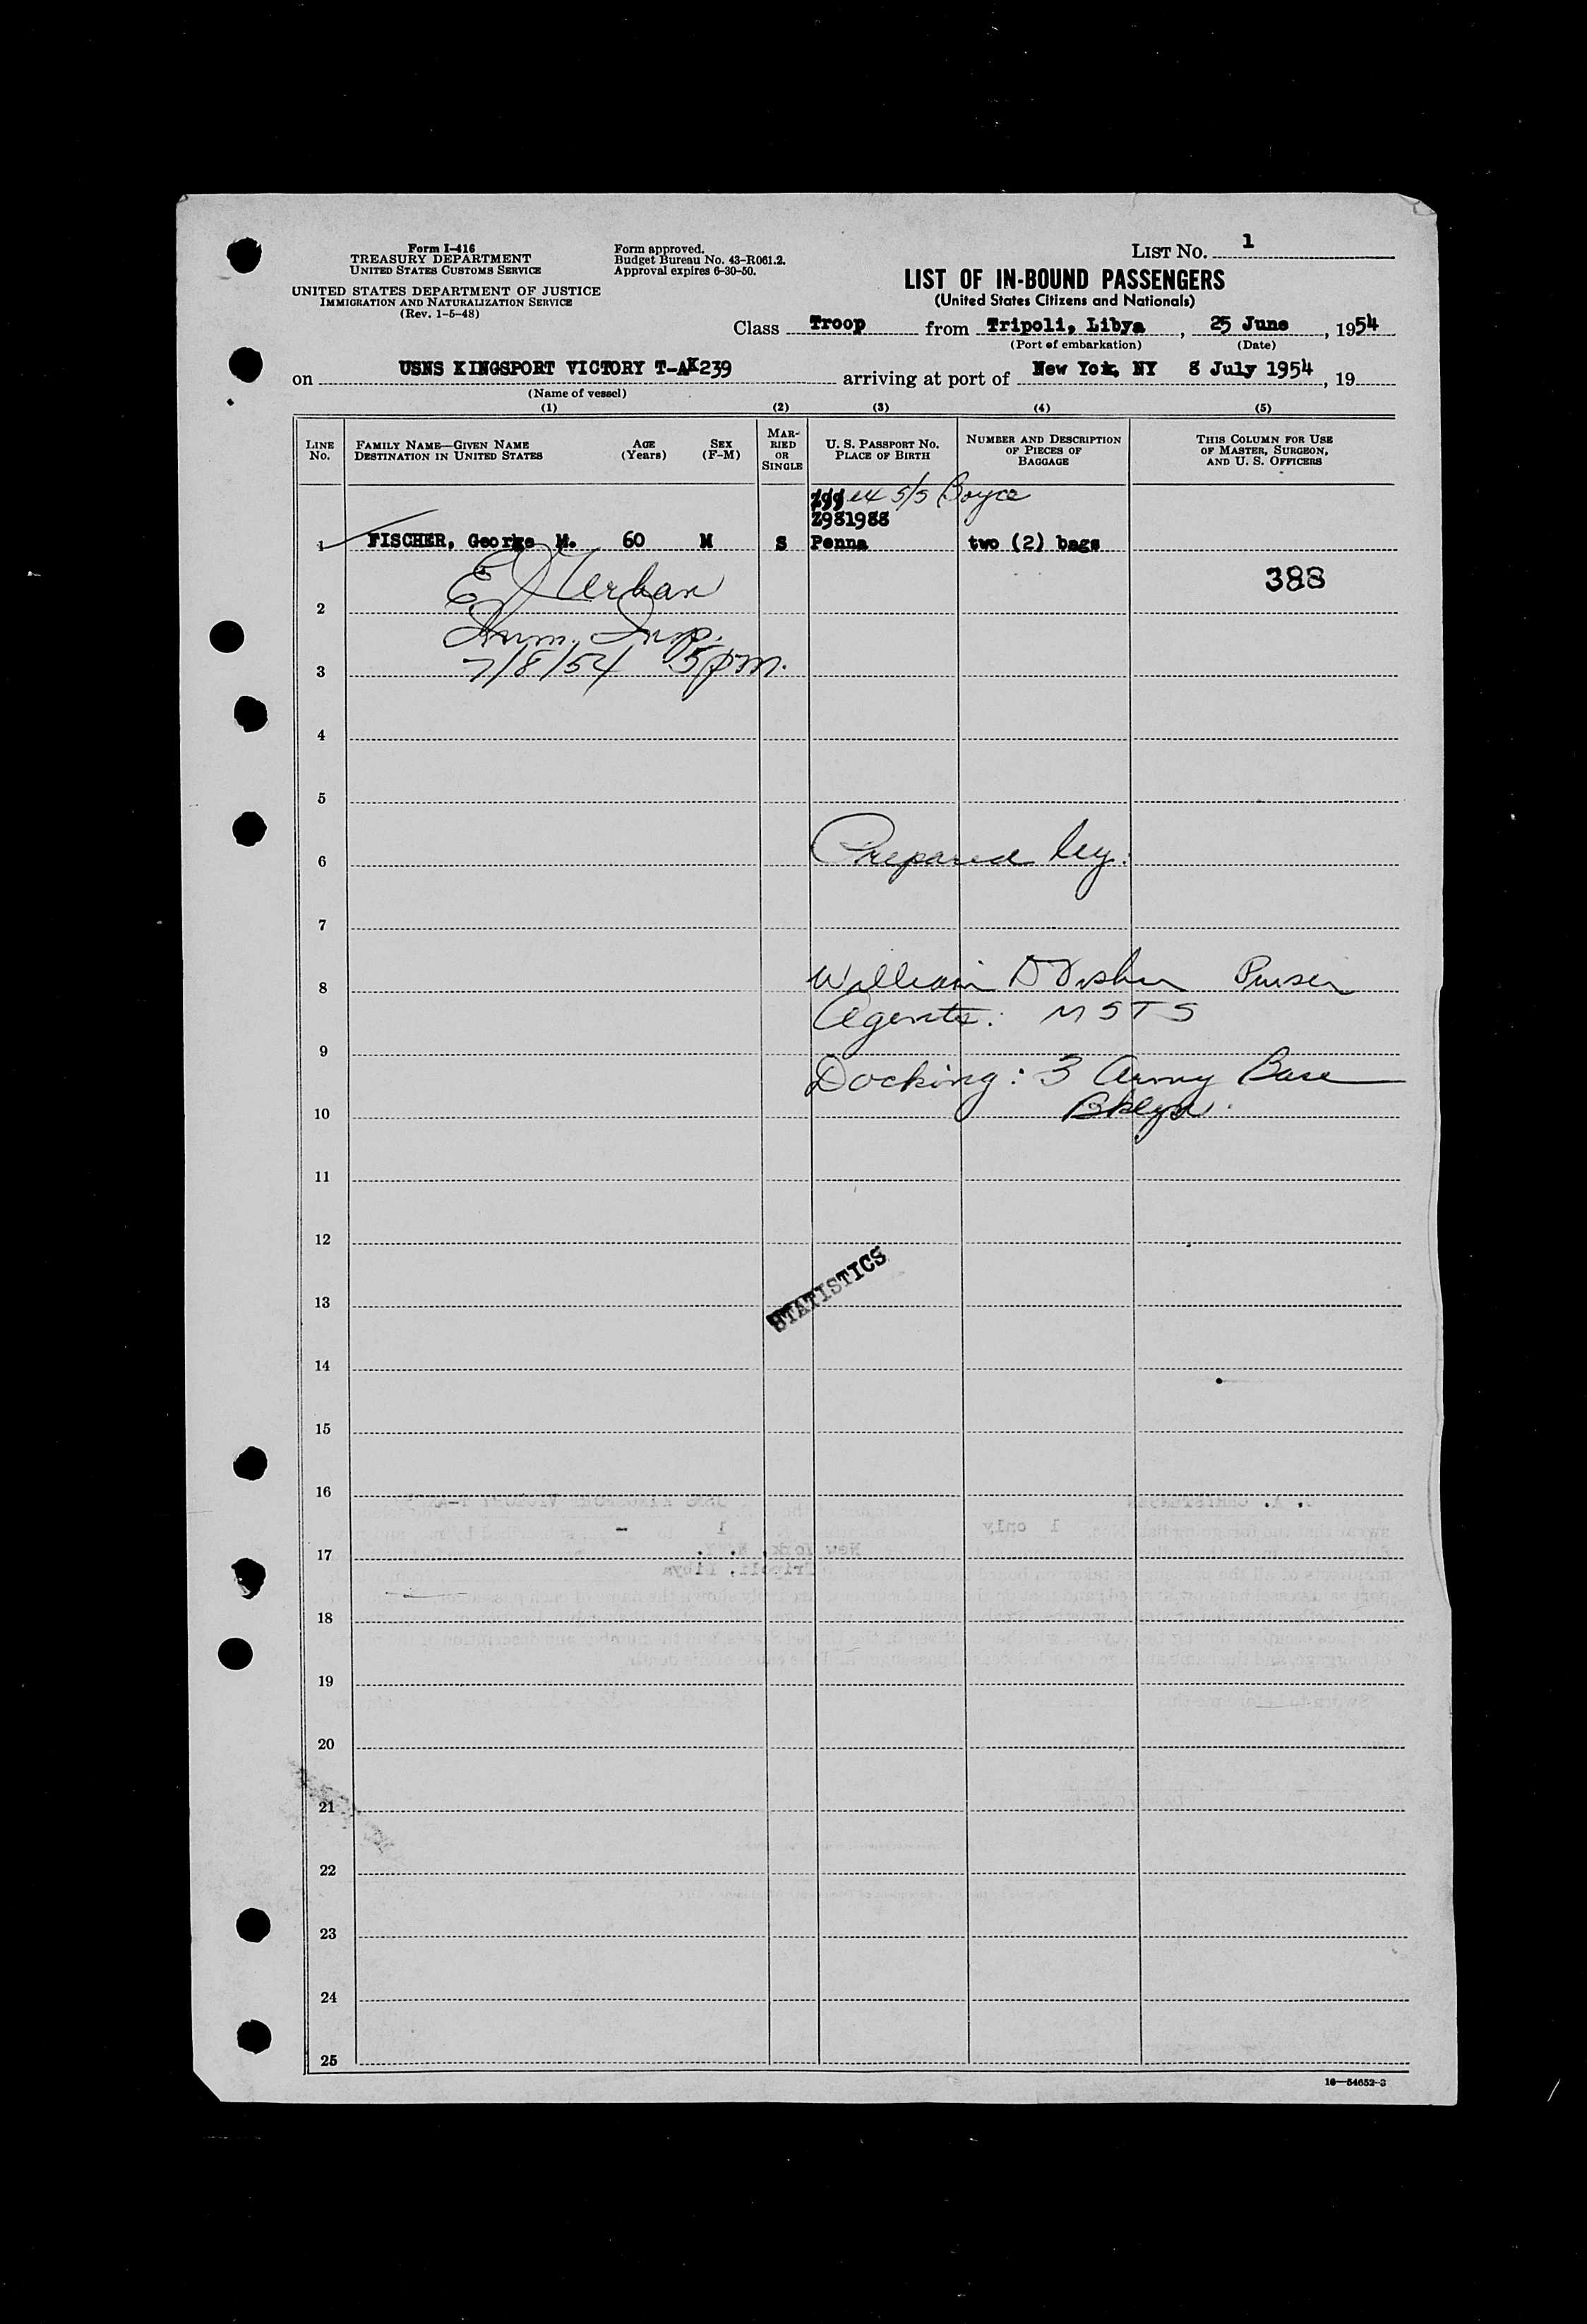 Form I-416
TREASURY DEPARTMENT
UNITED STATES CUSTOMS SERVICE
UNITED STATES DEPARTMENT OF JUSTICE
IMMIGRATION AND NATURALIZATION SERVICE
(Rev. 1-5-48)
Form approved.
Budget Bureau No. 43-R061.2.
Approval expires 6-30-50.
LIST NO. 1
LIST OF IN-BOUND PASSENGERS
(United States Citizens and Nationals)
Class Troop from Tripoli, Libya, 25 June, 1954
(Port of embarkation) (Date)
on USNS KINGSPORT VICTORY T-AK239 arriving at port of New Yok, NY 8 July 1954, 19
(Name of vessel)
(1) (2) (3) (4) (5)
LINE NO. FAMILY NAME—GIVEN NAME DESTINATION IN UNITED STATES AGE (Years) SEX (F-M) MARRIED OR SINGLE U. S. PASSPORT NO. PLACE OF BIRTH NUMBER AND DESCRIPTION OF PIECES OF BAGGAGE THIS COLUMN FOR USE OF MASTER, SURGEON, AND U. S. OFFICERS
S/S Boyce
Z981988
1 FISCHER, George M. 60 M S Penna two (2) bags
388
2
Imm. Insp.
3 7/8/54 5pm.
4
5
6 Prepared by:
7
8 William D Purser
Agents: MSTS
9
Docking: 3 Army Base
10 Bklyn.
11
12
STATISTICS
13
14
15
16
USNS KINGSPORT VICTORY
1 only
1 -
17 New York, N. Y.
Tripoli, Libya
18
19
20
21
22
23
24
25
16—54652-3